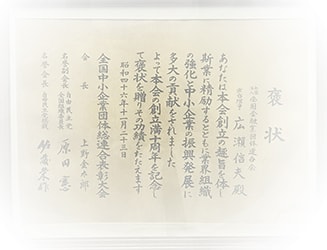 褒状
広瀬信夫殿
あなたは本会創立の趣旨を体し
斯業に精励するとともに業界組織
の強化と中小企業の振興発展に
多大の貢献をされました
よって本会の創立満十周年を記念し
て褒状を贈りその功績をたたえます
昭和四十六年十一月二十三日
全国中小企業団体総連合表彰大会
会長 上野
名誉副会長 原田憲
名誉会長 佐藤栄作